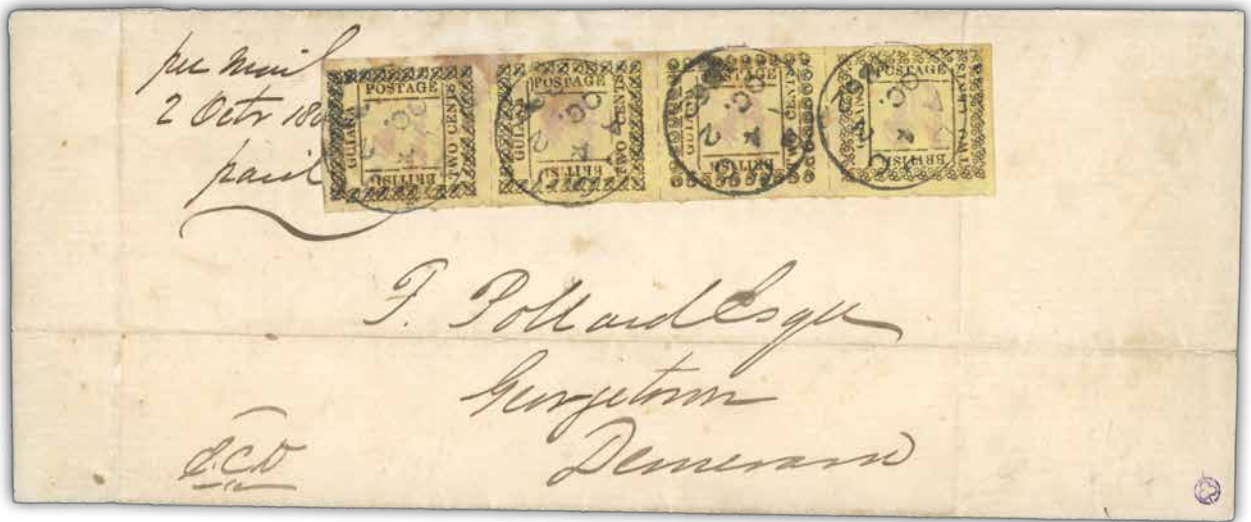 per mail
2 Octr 186
paid
POSTAGE
BRITISH
GUIANA
TWO CENTS
POSTAGE
BRITISH
GUIANA
TWO CENTS
POSTAGE
BRITISH
GUIANA
TWO CENTS
POSTAGE
BRITISH
GUIANA
TWO CENTS
F. Pollard Esqre
Georgetown
Demerara